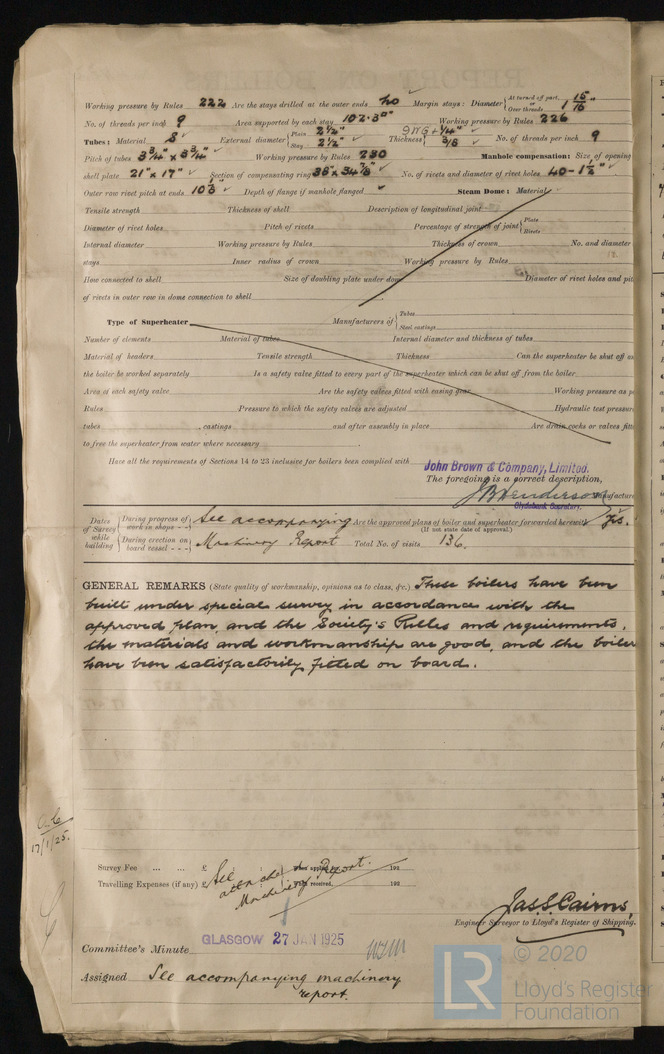 Working pressure by Rules 222 Are the stays drilled at the outer ends No Margin stays: Diameter { At turned off part, or Over threads 1 15/16"
No. of threads per inch 9 Area supported by each stay 102.3□" Working pressure by Rules 226
Tubes: Material S External diameter { Plain 2½" Stay 2½" Thickness { 9WG + ¼" 3/8 No. of threads per inch 9
Pitch of tubes 3¾" x 3¾" Working pressure by Rules 230 Manhole compensation: Size of opening
shell plate 21" x 17" Section of compensating ring No. of rivets and diameter of rivet holes 40 - 1½"
Outer row rivet pitch at ends Depth of flange if manhole flanged Steam Dome: Material
Tensile strength Thickness of shell Description of longitudinal joint
Diameter of rivet holes Pitch of rivets Percentage of strength of joint { Plate Rivets
Internal diameter Working pressure by Rules Thickness of crown No. and diameter
stays Inner radius of crown Working pressure by Rules
How connected to shell Size of doubling plate under dome Diameter of rivet holes and pit
of rivets in outer row in dome connection to shell
Type of Superheater Manufacturers of { Tubes Steel castings
Number of elements Material of tubes Internal diameter and thickness of tubes
Material of headers Tensile strength Thickness Can the superheater be shut off a
the boiler be worked separately Is a safety valve fitted to every part of the superheater which can be shut off from the boiler
Area of each safety valve Are the safety valves fitted with easing gear Working pressure as p
Rules Pressure to which the safety valves are adjusted Hydraulic test pressure
tubes , castings and after assembly in place Are drain cocks or valves fitt
to free the superheater from water where necessary
Have all the requirements of Sections 14 to 23 inclusive for boilers been complied with
John Brown & Company, Limited.
The foregoing is a correct description,
JB Henderson Manufacture
Clydebank Secretary.
Dates of Survey while building { During progress of work in shops - - See accompanying Are the approved plans of boiler and superheater forwarded herewith Yes.
(If not state date of approval.)
During erection on board vessel - - - Machinery Report Total No. of visits 136.
GENERAL REMARKS (State quality of workmanship, opinions as to class, &c.) These boilers have been
built under special survey in accordance with the
approved plan, and the Society's Rules and requirements,
the materials and workmanship are good, and the boiler
have been satisfactorily fitted on board.
17/1/25.
Survey Fee ... ... £ See When applied for, 192
Travelling Expenses (if any) £ attached Machinery Report. When received, 192
Jas S Cairns,
Engineer Surveyor to Lloyd's Register of Shipping.
GLASGOW 27 JAN 1925
Committee's Minute
Assigned See accompanying machinery
report.
© 2020
LR
Lloyd's Register
Foundation